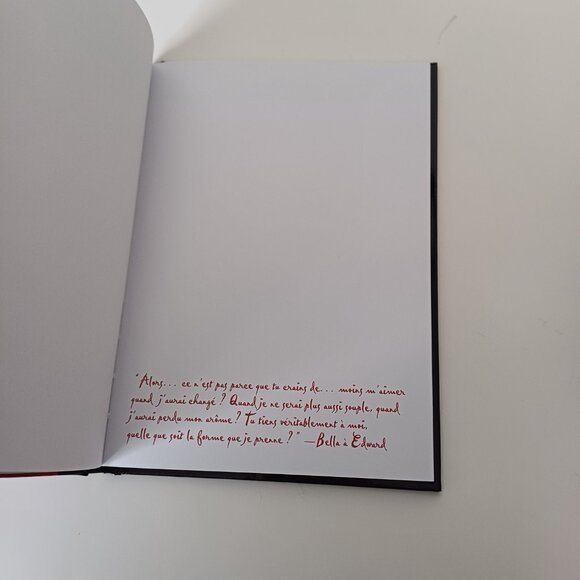 "Alors... ce n'est pas parce que tu crains de... moins m'aimer
quand j'aurai changé ? Quand je ne serai plus aussi souple, quand
j'aurai perdu mon arôme ? Tu tiens véritablement à moi,
quelle que soit la forme que je prenne ?" —Bella à Edward